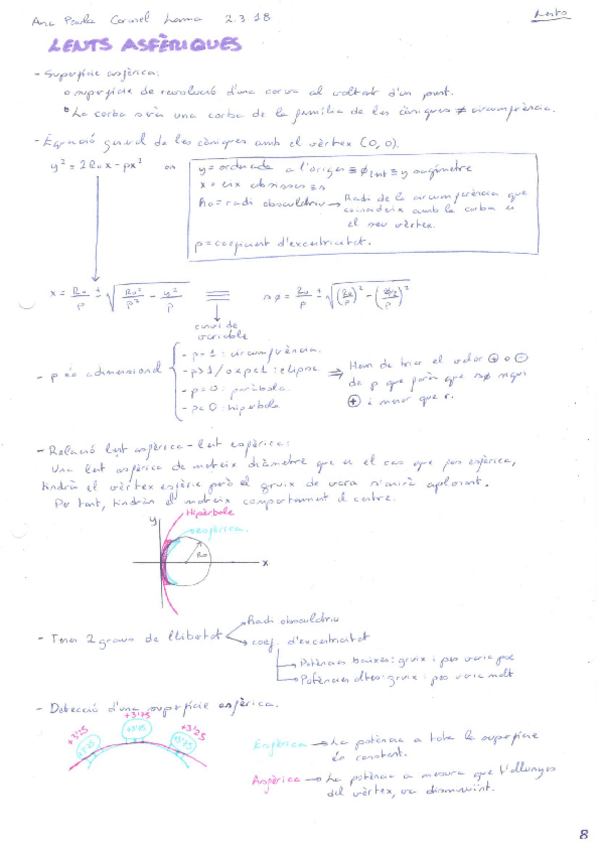 Ana Paula Coronel 2.3.18
LENTS ASFÈRIQUES
- Superfície asfèrica:
o superfície de revolució d'una corva al voltant d'un punt.
o La corba serà una corba de la família de les còniques ≠ circumferència.
- Equació general de les còniques amb el vèrtex (0,0).
y² = 2R₀x - px² on
y = ordenada a l'origen ≡ ≡ y sagímetre
x = eix abscisses ≡ s
R₀ = radi osculador → Radi de la circumferència que
coincideix amb la corba en
el seu vèrtex.
p = coeficient d'excentricitat.
x = R₀/p ± √(R₀²/p² - y²/p) ≡ sø = R₀/p ± √((R₀/p)² - (ø/2/p)²)
canvi de
variable
- p és adimensional
- p=1: circumferència.
- p>1/0<p<1: elipse.
- p=0: paràbola.
- p<0: hipèrbola
⇒ Hem de triar el valor ⊕ o ⊖
de p que farà que sø sigui
⊕ i menor que r.
- Relació lent asfèrica - lent esfèrica:
Una lent asfèrica de mateix diàmetre que en el cas que fos esfèrica,
tindrà el vèrtex esfèric però el gruix de vora s'anirà aplanant.
Per tant, tindran el mateix comportament al centre.
Hipèrbole
esfèrica.
y
R₀
x
- Tenen 2 graus de llibertat
Radi osculador
coef. d'excentricitat
Potències baixes: gruix i pes varia poc
Potències altes: gruix i pes varia molt
- Detecció d'una superfície esfèrica.
+3'25 +3'75 +3'25
+3'75 +3'75
Esfèrica → La potència a tota la superfície
és constant.
Asfèrica → La potència a mesura que t'allunyes
del vèrtex, va disminuint.
8